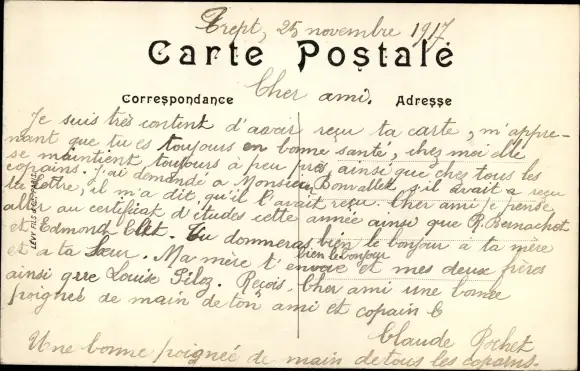 Trept, 25 novembre 1917
Carte Postale
Cher ami.
Correspondance Adresse
Je suis très content d'avoir reçu ta carte, m'appre-
nant que tu es toujours en bonne santé, chez moi elle
se maintient toujours à peu près ainsi que chez tous les
copains. J'ai demandé a Monsieur Bonvallet s'il avait a reçu
ta lettre, il m'a dit qu'il l'avait reçu. Cher ami je pense
aller au certificat d'études cette année ainsi que R. Bernachot
et Edmond. Tu donneras bien le bonjour a ta mère
et a ta sœur. Ma mère t'envoie bien le bonjour et mes deux frères
ainsi que Louise. Reçois, Cher ami une bonne
poignée de main de ton ami et copain C
Claude Pochet
Une bonne poignée de main de tous les copains.
LÉVY FILS & Cie, PARIS